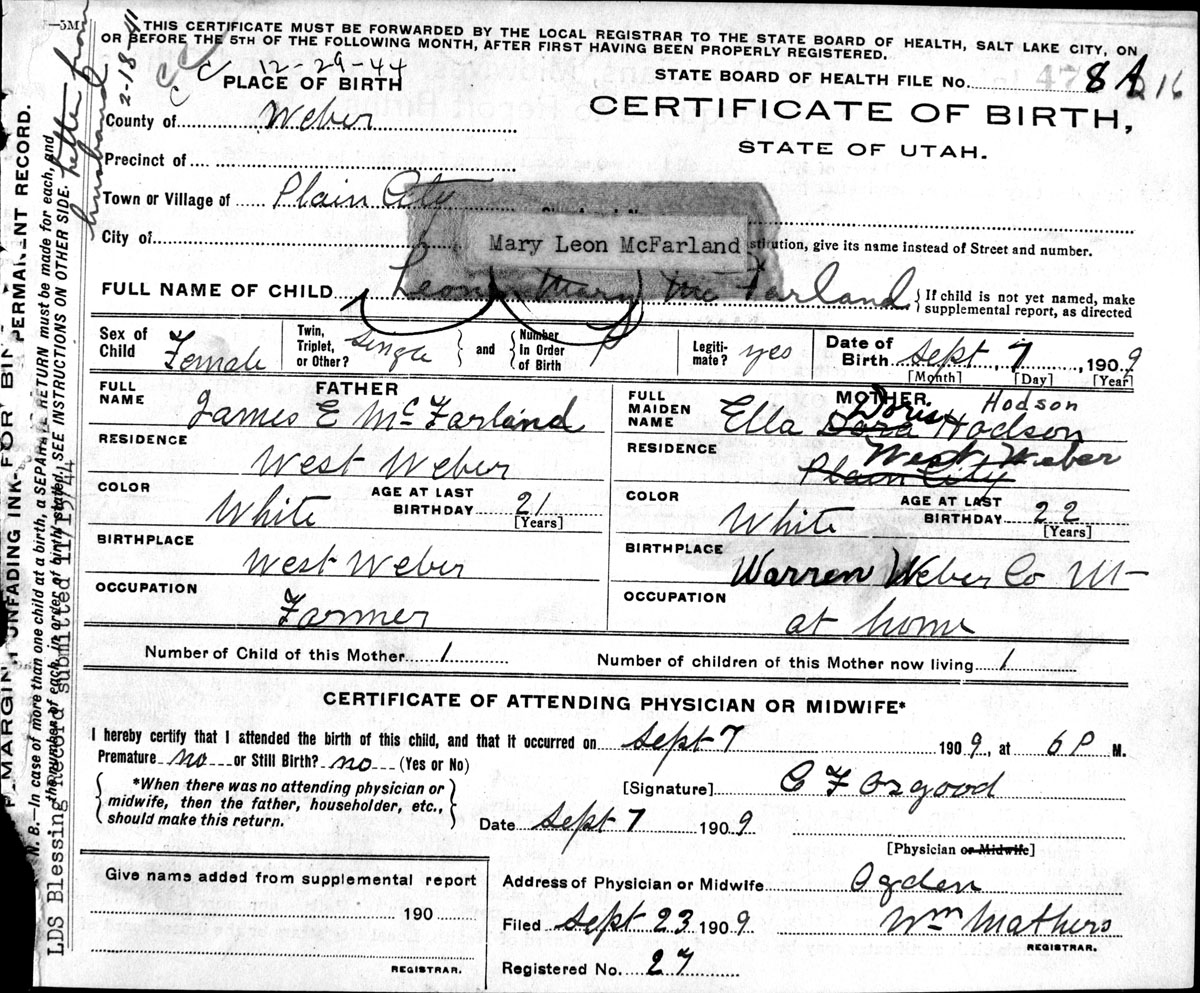 —5M
THIS CERTIFICATE MUST BE FORWARDED BY THE LOCAL REGISTRAR TO THE STATE BOARD OF HEALTH, SALT LAKE CITY, ON
OR BEFORE THE 5TH OF THE FOLLOWING MONTH, AFTER FIRST HAVING BEEN PROPERLY REGISTERED.
12-29-44
PLACE OF BIRTH
STATE BOARD OF HEALTH FILE No.
CERTIFICATE OF BIRTH,
STATE OF UTAH.
County of Weber
Precinct of
Town or Village of Plain City
City of
Mary Leon McFarland
stitution, give its name instead of Street and number.
FULL NAME OF CHILD Leon Mary McFarland
If child is not yet named, make
supplemental report, as directed
Sex of Child Female
Twin, Triplet, or Other? single and Number In Order of Birth
Legiti-mate? yes
Date of Birth Sept 7, 1909
[Month] [Day] [Year]
FATHER
FULL NAME James E McFarland
RESIDENCE West Weber
COLOR White
AGE AT LAST BIRTHDAY 21
[Years]
BIRTHPLACE West Weber
OCCUPATION Farmer
MOTHER
Hodson
FULL MAIDEN NAME Ella Dora Doris Hodson
RESIDENCE Plain City West Weber
COLOR White
AGE AT LAST BIRTHDAY 22
[Years]
BIRTHPLACE Warren Weber Co Ut
OCCUPATION at home
Number of Child of this Mother 1
Number of children of this Mother now living 1
CERTIFICATE OF ATTENDING PHYSICIAN OR MIDWIFE*
I hereby certify that I attended the birth of this child, and that it occurred on Sept 7 1909, at 6 P M.
Premature no or Still Birth? no (Yes or No)
*When there was no attending physician or
midwife, then the father, householder, etc.,
should make this return.
[Signature] C F Osgood
Date Sept 7 1909
[Physician or Midwife]
Give name added from supplemental report
190
REGISTRAR.
Address of Physician or Midwife Ogden
Filed Sept 23 1909 Wm Mathers
REGISTRAR.
Registered No. 27
MARGIN
UNFADING INK
FOR
PERMANENT RECORD.
N. B.—In case of more than one child at a birth, a SEPARATE RETURN must be made for each, and
the number of each, in order of birth, stated. SEE INSTRUCTIONS ON OTHER SIDE.
LDS Blessing Record submitted 11/15/44
2-18-41
Letter from
husband